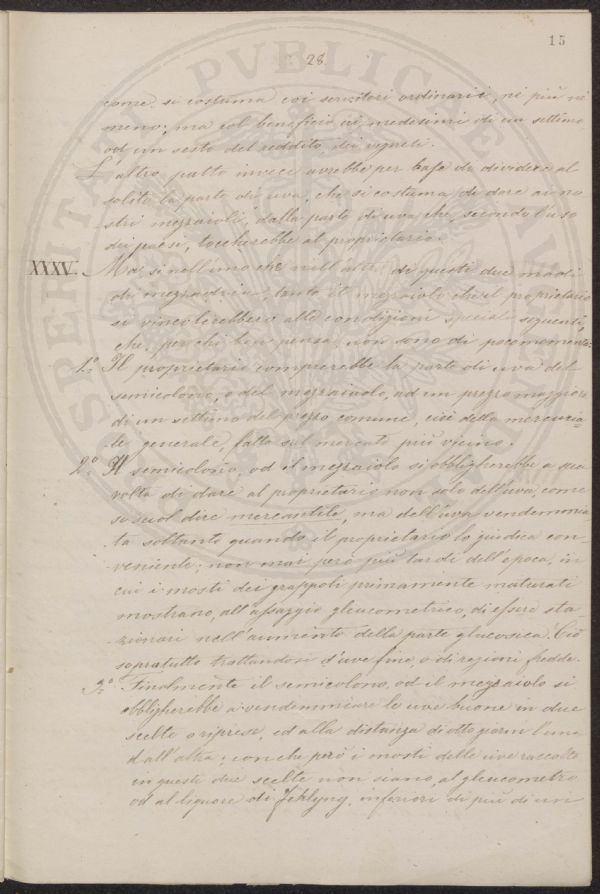 15
28.
come si costuma coi servitori ordinarii, nè più nè
meno; ma col beneficio ai medesimi di un settimo
od un sesto del reddito dei vigneti.
L'altro patto invece avrebbe per base di dividere al
solito la parte di uva, che si costuma di dare ai no
stri mezzaioli, dalla parte di uva che, secondo l'uso
dei paesi, toccherebbe al proprietario.
XXXV. Ma, si nell'uno che nell'altro di questi due modi
di mezzadria, tanto il mezzaiolo che il proprietario
si vincolerebbero alle condizioni speciali seguenti,
che, per chi ben pensa, non sono di poco momento:
1.° Il proprietario comprerebbe la parte di uva del
semicolono, o del mezzaiuolo, ad un prezzo maggiore
di un settimo del prezzo comune, cioè della mercuria=
le generale, fatta sul mercato più vicino.
2.° Il semicolono, od il mezzaiolo si obbligherebbe a sua
volta di dare al proprietario non solo dell'uva, come
si suol dire mercantile, ma dell'uva vendemmia
ta soltanto quando il proprietario lo giudica con
veniente; non mai però più tardi dell'epoca, in
cui i mosti dei grappoli primamente maturati
mostrano, all'assaggio gleucometrico, di essere sta
zionari nell'aumento della parte glucosica. Ciò
sopratutto trattandosi d'uve fine, o di regioni fredde.
3.° Finalmente il semicolono, od il mezzaiolo si
obbligherebbe a vendemmiare le uve buone in due
scelte o riprese, ed alla distanza di otto giorni l'una
dall'altra; con che però i mosti delle uve raccolte
in queste due scelte non siano, al gleucometro
od al liquore di Fehlyng, inferiori di più di un
SPERITAS PVBLICAE AVGE